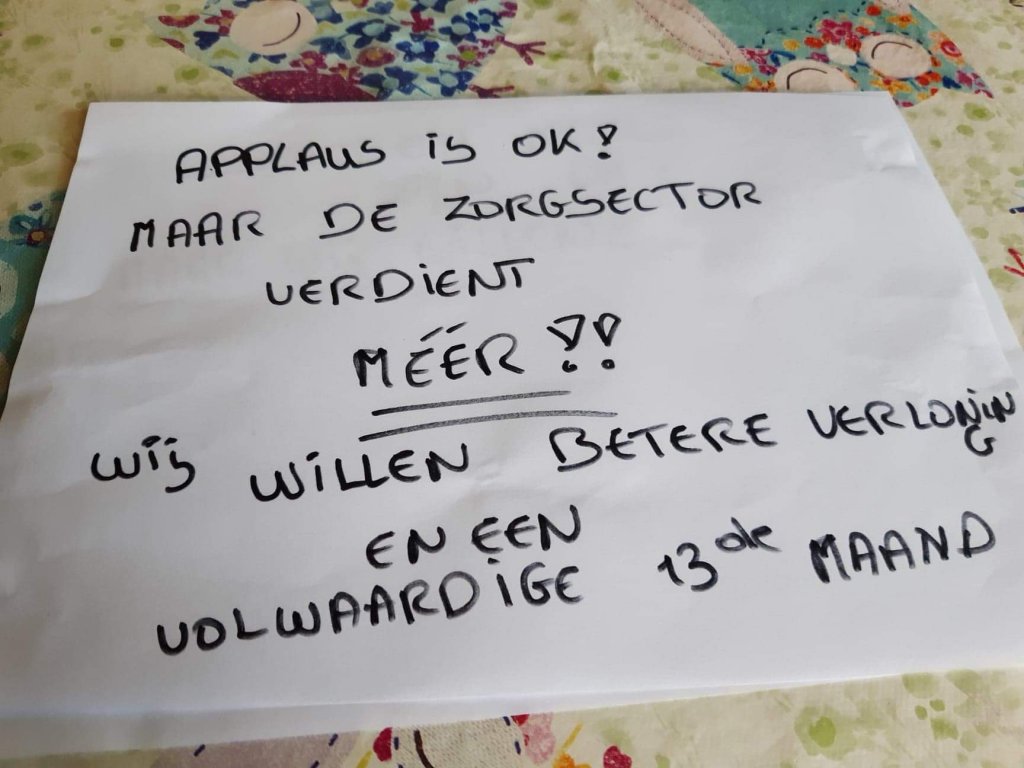 APPLAUS is OK!
MAAR DE ZORGSECTOR
VERDiENT
MÉÉR !!
Wij WiLLEN BETERE VERLONiNG
EN EEN
VOLWAARDiGE 13de MAAND